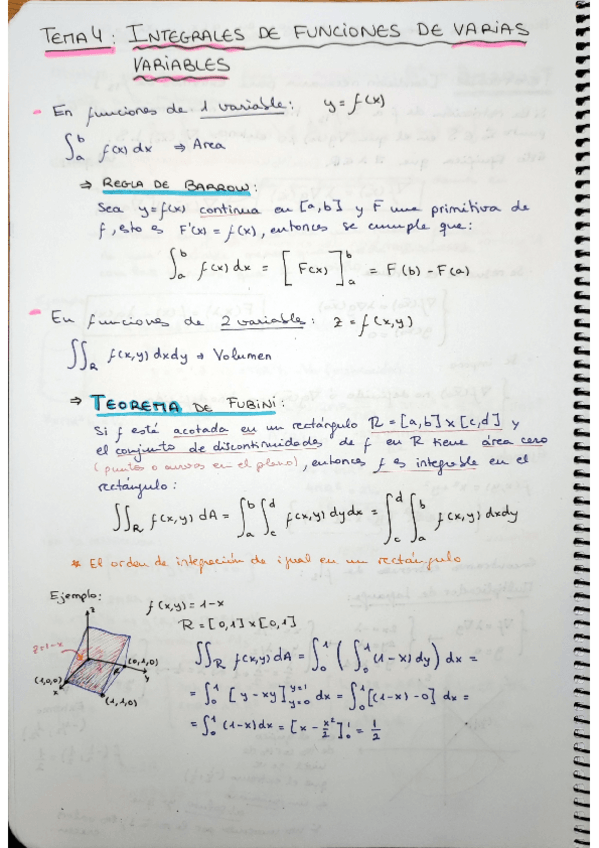 TEMA 4: INTEGRALES DE FUNCIONES DE VARIAS
VARIABLES
- En funciones de 1 variable: y = f(x)
∫_a^b f(x) dx ⇒ Area
⇒ REGLA DE BARROW:
Sea y=f(x) continua en [a,b] y F una primitiva de
f, esto es F'(x) = f(x), entonces se cumple que:
∫_a^b f(x) dx = [F(x)]_a^b = F(b) - F(a)
- En funciones de 2 variables: z = f(x,y)
∬_R f(x,y) dxdy → Volumen
⇒ TEOREMA DE FUBINI:
Si f está acotada en un rectángulo R = [a,b] x [c,d] y
el conjunto de discontinuidades de f en R tiene área cero
(puntos o curvas en el plano), entonces f es integrable en el
rectángulo:
∬_R f(x,y) dA = ∫_a^b ∫_c^d f(x,y) dydx = ∫_c^d ∫_a^b f(x,y) dxdy
* El orden de integración da igual en un rectángulo
Ejemplo:
f(x,y) = 1-x
R = [0,1] x [0,1]
z
z=1-x
(0,1,0)
y
R
(1,0,0)
x
(1,1,0)
∬_R f(x,y) dA = ∫_0^1 (∫_0^1 (1-x) dy) dx =
= ∫_0^1 [y - xy]_{y=0}^{y=1} dx = ∫_0^1 [(1-x) - 0] dx =
= ∫_0^1 (1-x) dx = [x - x²/2]_0^1 = 1/2